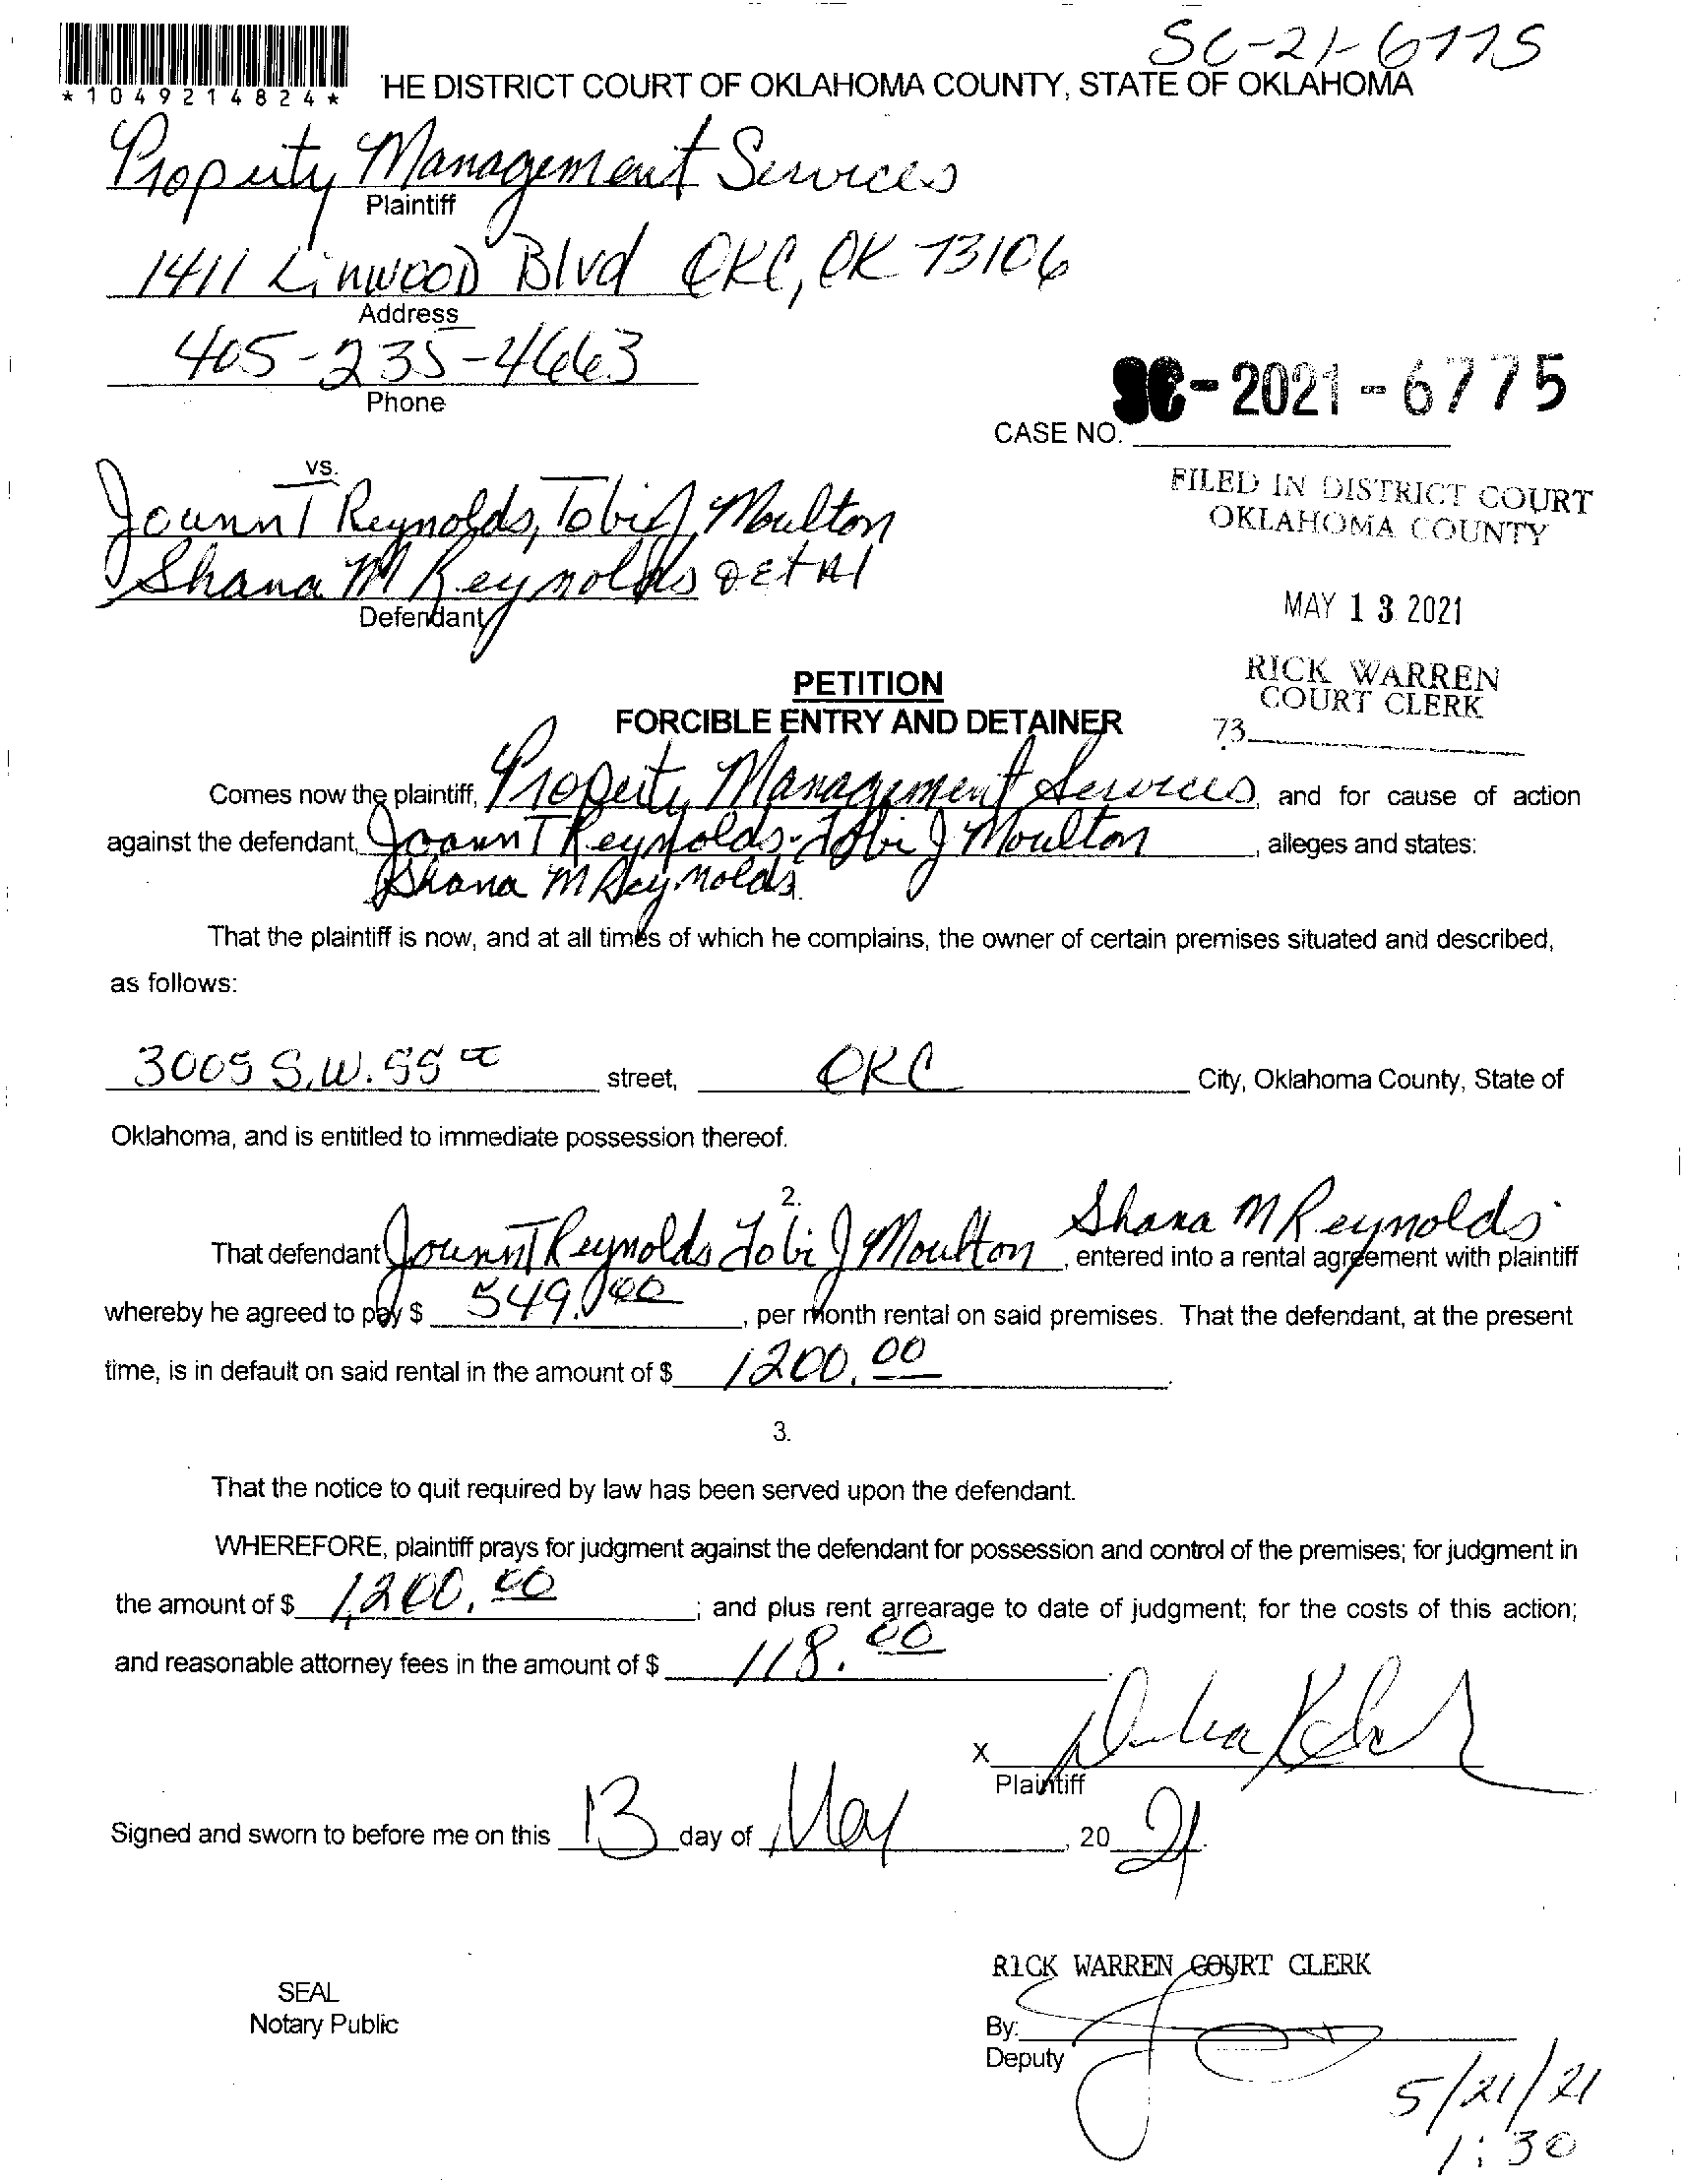 SC-21-6775
*1049214824*
'HE DISTRICT COURT OF OKLAHOMA COUNTY, STATE OF OKLAHOMA
Property Management Services
Plaintiff
1411 Linwood Blvd OKC, OK 73106
Address
405-235-4663
Phone
SC-2021-6775
CASE NO.
vs.
Joann T Reynolds, Tobi J Moulton
Shana M Reynolds etal
Defendant
FILED IN DISTRICT COURT
OKLAHOMA COUNTY
MAY 13 2021
RICK WARREN
COURT CLERK
73
PETITION
FORCIBLE ENTRY AND DETAINER
Comes now the plaintiff, Property Management Services, and for cause of action
against the defendant, Joann T Reynolds - Tobi J Moulton, alleges and states:
Shana M Reynolds
That the plaintiff is now, and at all times of which he complains, the owner of certain premises situated and described,
as follows:
3005 S.W. 55 street, OKC City, Oklahoma County, State of
Oklahoma, and is entitled to immediate possession thereof.
2.
Shana M Reynolds
That defendant Joann T Reynolds Tobi J Moulton, entered into a rental agreement with plaintiff
whereby he agreed to pay $ 549.00, per month rental on said premises. That the defendant, at the present
time, is in default on said rental in the amount of $ 1200.00
3.
That the notice to quit required by law has been served upon the defendant.
WHEREFORE, plaintiff prays for judgment against the defendant for possession and control of the premises; for judgment in
the amount of $ 1,200.00; and plus rent arrearage to date of judgment; for the costs of this action;
and reasonable attorney fees in the amount of $ 118.00
X
Plaintiff
Signed and sworn to before me on this 13 day of May, 20 21
RICK WARREN COURT CLERK
SEAL
Notary Public
By:
Deputy
5/21/21
1:30